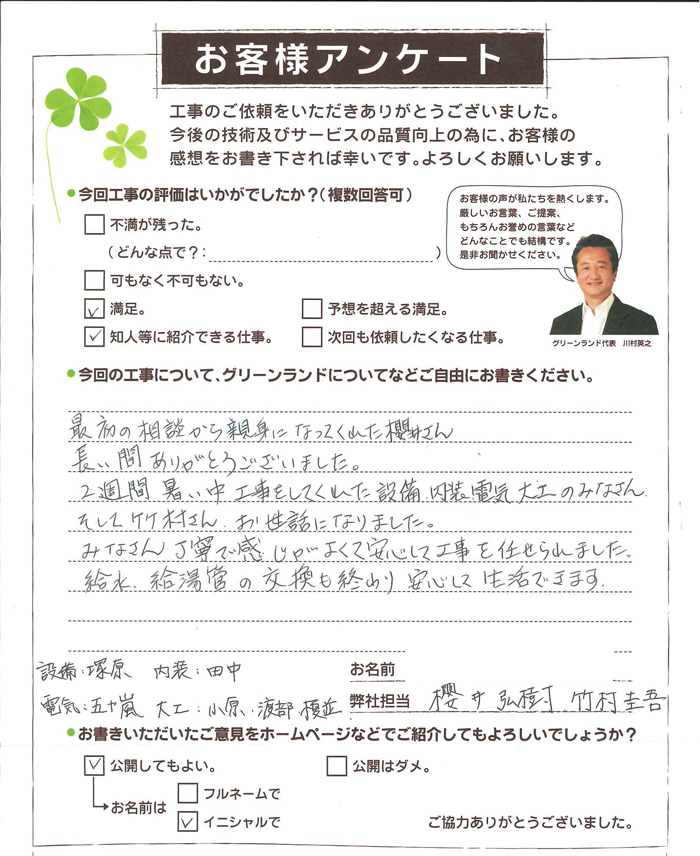 お客様アンケート
工事のご依頼をいただきありがとうございました。
今後の技術及びサービスの品質向上の為に、お客様の
感想をお書き下されば幸いです。よろしくお願いします。
●今回工事の評価はいかがでしたか？（複数回答可）
不満が残った。
（どんな点で？：　）
可もなく不可もない。
満足。
予想を超える満足。
知人等に紹介できる仕事。
次回も依頼したくなる仕事。
お客様の声が私たちを熱くします。
厳しいお言葉、ご提案、
もちろんお誉めの言葉など
どんなことでも結構です。
是非お聞かせください。
グリーンランド代表　川村英之
●今回の工事について、グリーンランドについてなどご自由にお書きください。
最初の相談から親身になってくれた櫻井さん
長い間ありがとうございました。
2週間暑い中工事をしてくれた設備、内装、電気、大工のみなさん、
そして竹村さん、お世話になりました。
みなさん丁寧で感じがよくて安心して工事を任せられました。
給水、給湯管の交換も終わり安心して生活できます。
設備：塚原　内装：田中
電気：五十嵐　大工：小原、渡部、横近
お名前
弊社担当　櫻井弘樹　竹村圭吾
●お書きいただいたご意見をホームページなどでご紹介してもよろしいでしょうか？
公開してもよい。
公開はダメ。
お名前は
フルネームで
イニシャルで
ご協力ありがとうございました。